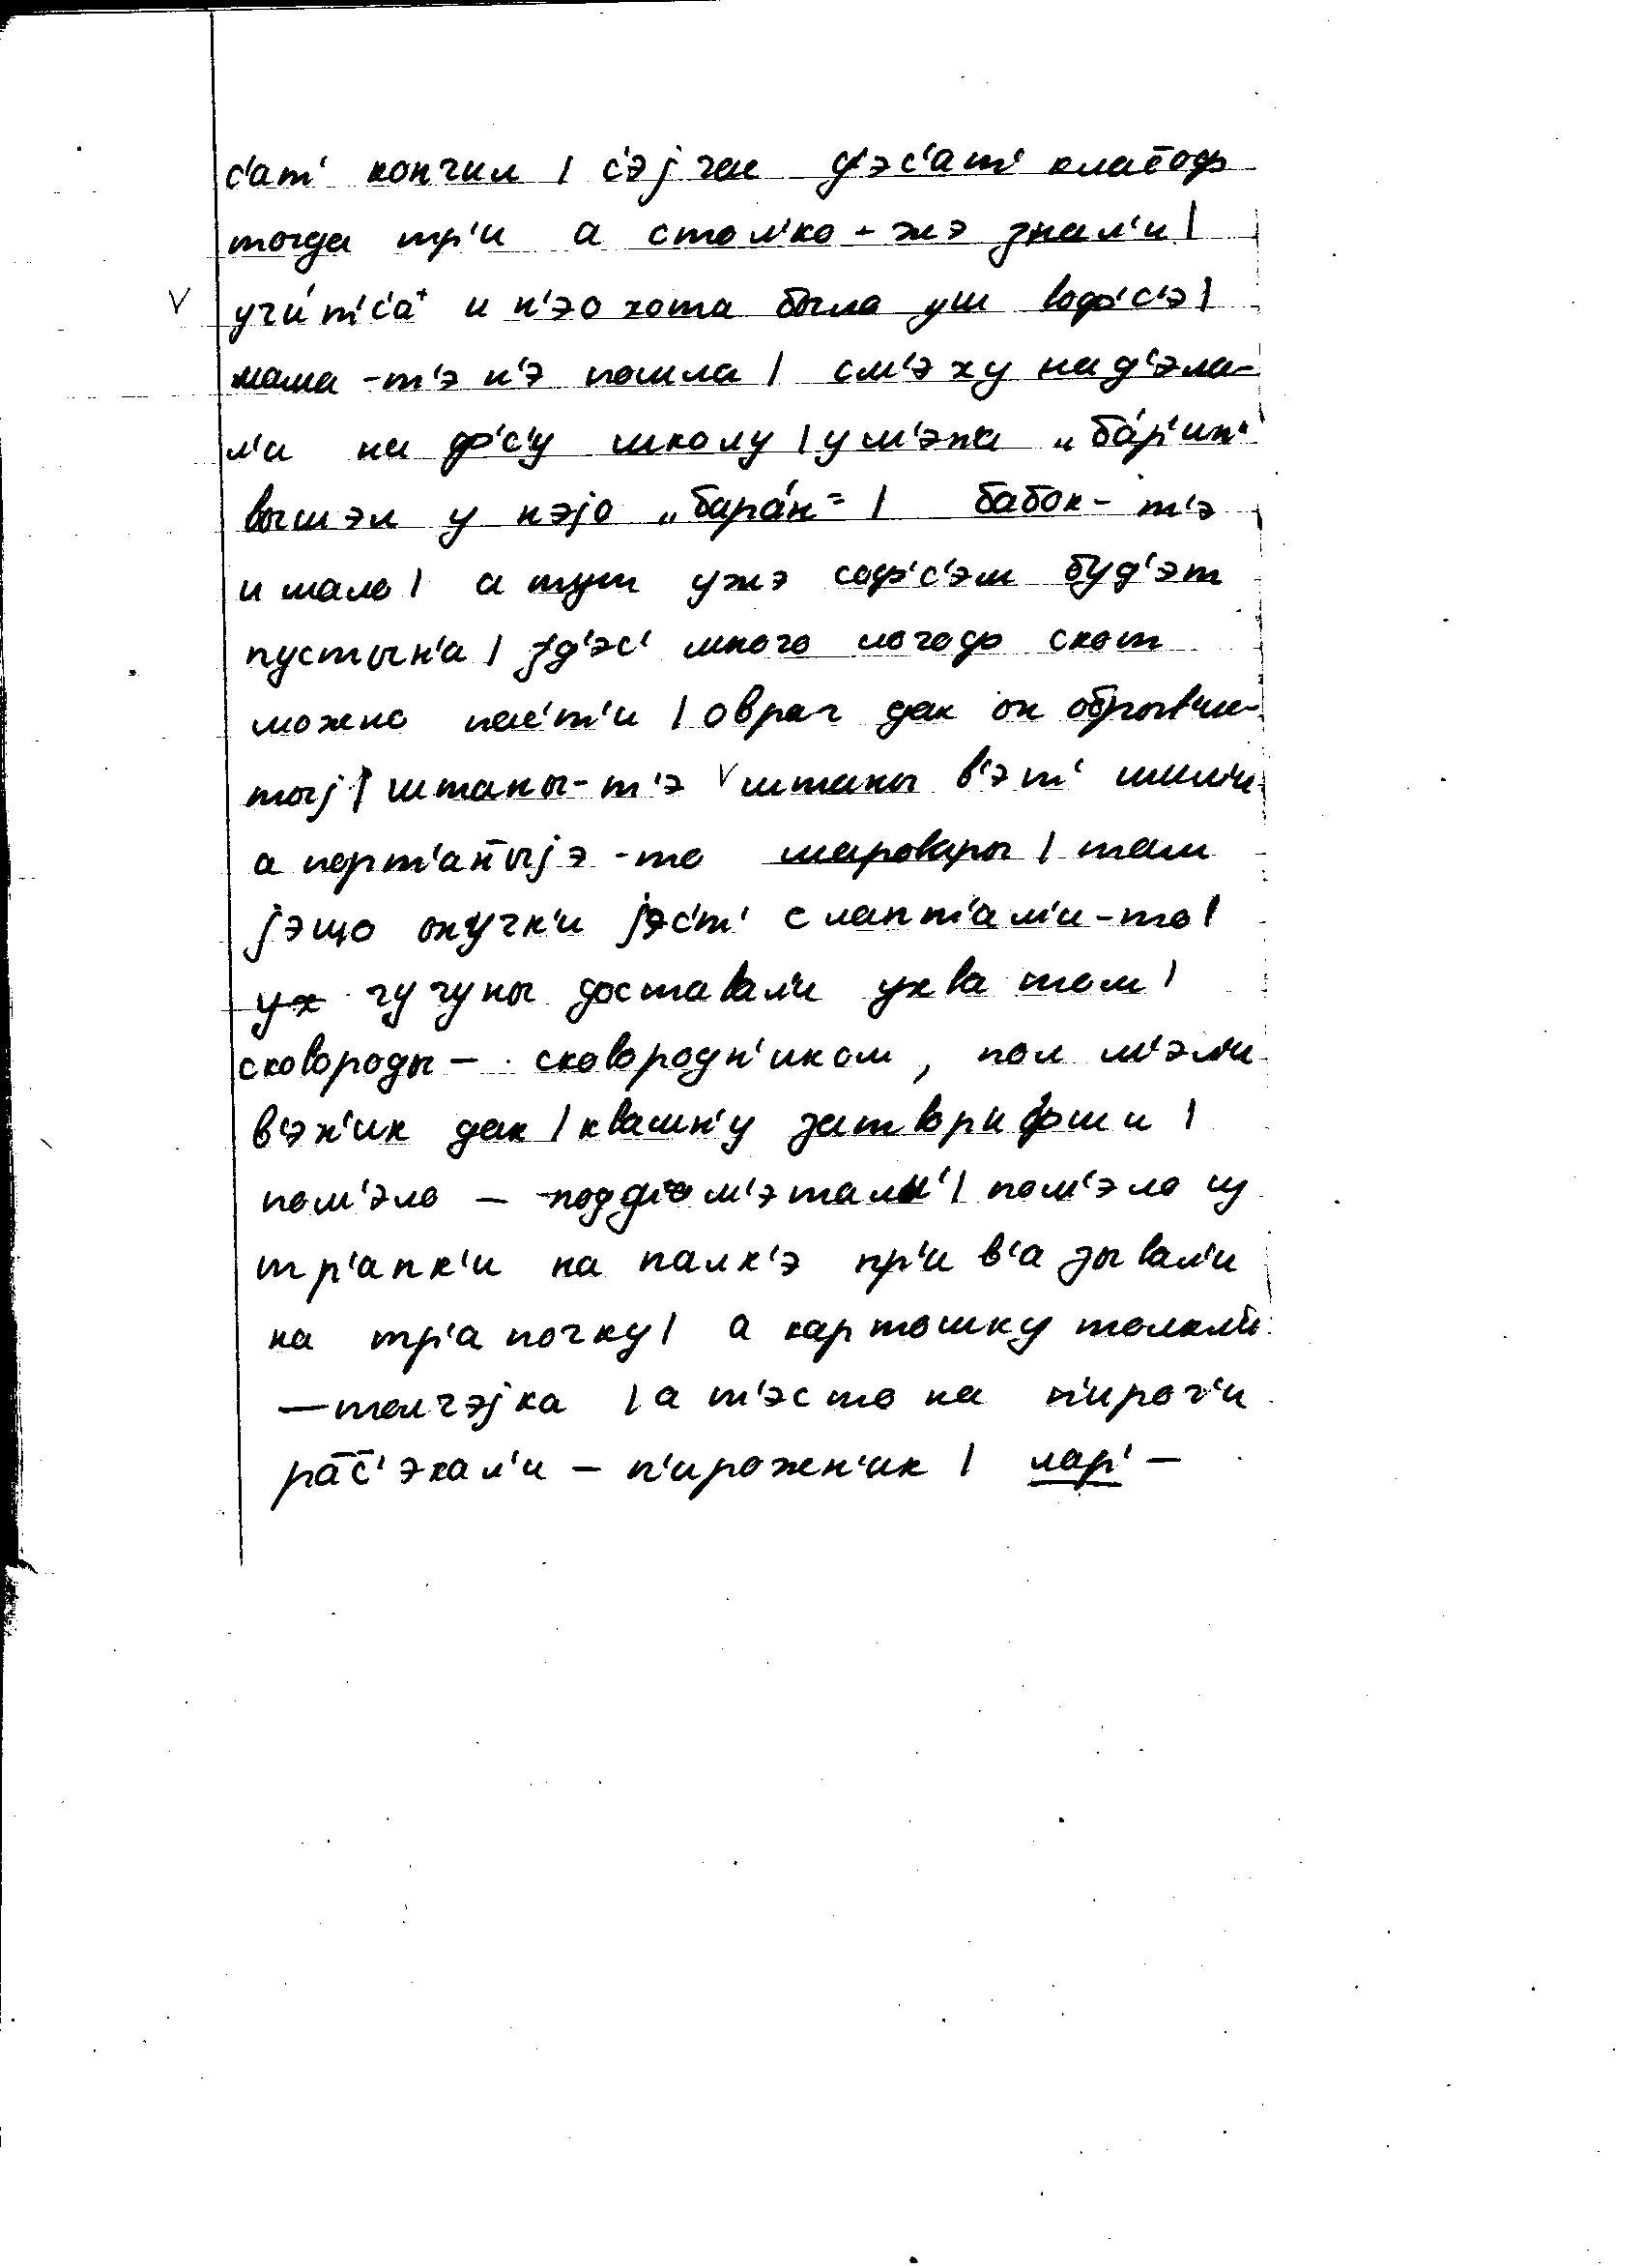 с'ат' кончил | с'эjчас д'эс'ат' клас̄оф
тогда тр'и а стол'ко-жэ знал'и |
V учи́т'с'а⁺ и н'эохота была уш вофс'э |
мама-т'э н'э пошла | см'эху над'эла-
л'и на фс'у школу | ум'эжа „ба́р'ин“
вышэл у нэjо „бара́н“ | бабок-т'э
и мало | а тут ужэ соф'с'эм буд'эт
пустын'а | зд'эс' много логоф скот
можно пас'т'и | овраг дак он обрывис-
тоj | штаны-т'э V штаны в'эт' шыли
а порт'ан̄ыjэ-то шаровары | там
jэщо онучк'и jэс'т' с лапт'ам'и-то |
чугуны доставал'и ухватом |
сковороды — сковородн'иком, пол м'эл'и
в'эн'ик дак | квашн'у затворифшы |
пом'эло — под м'этал'и | пом'эло из
тр'апк'и на палк'э пр'ив'азывал'и
на тр'апочку | а картошку толкл'и
— толчэjка | а т'эсто на п'ирог'и
рас̄'экал'и — п'ирожн'ик | лар' —